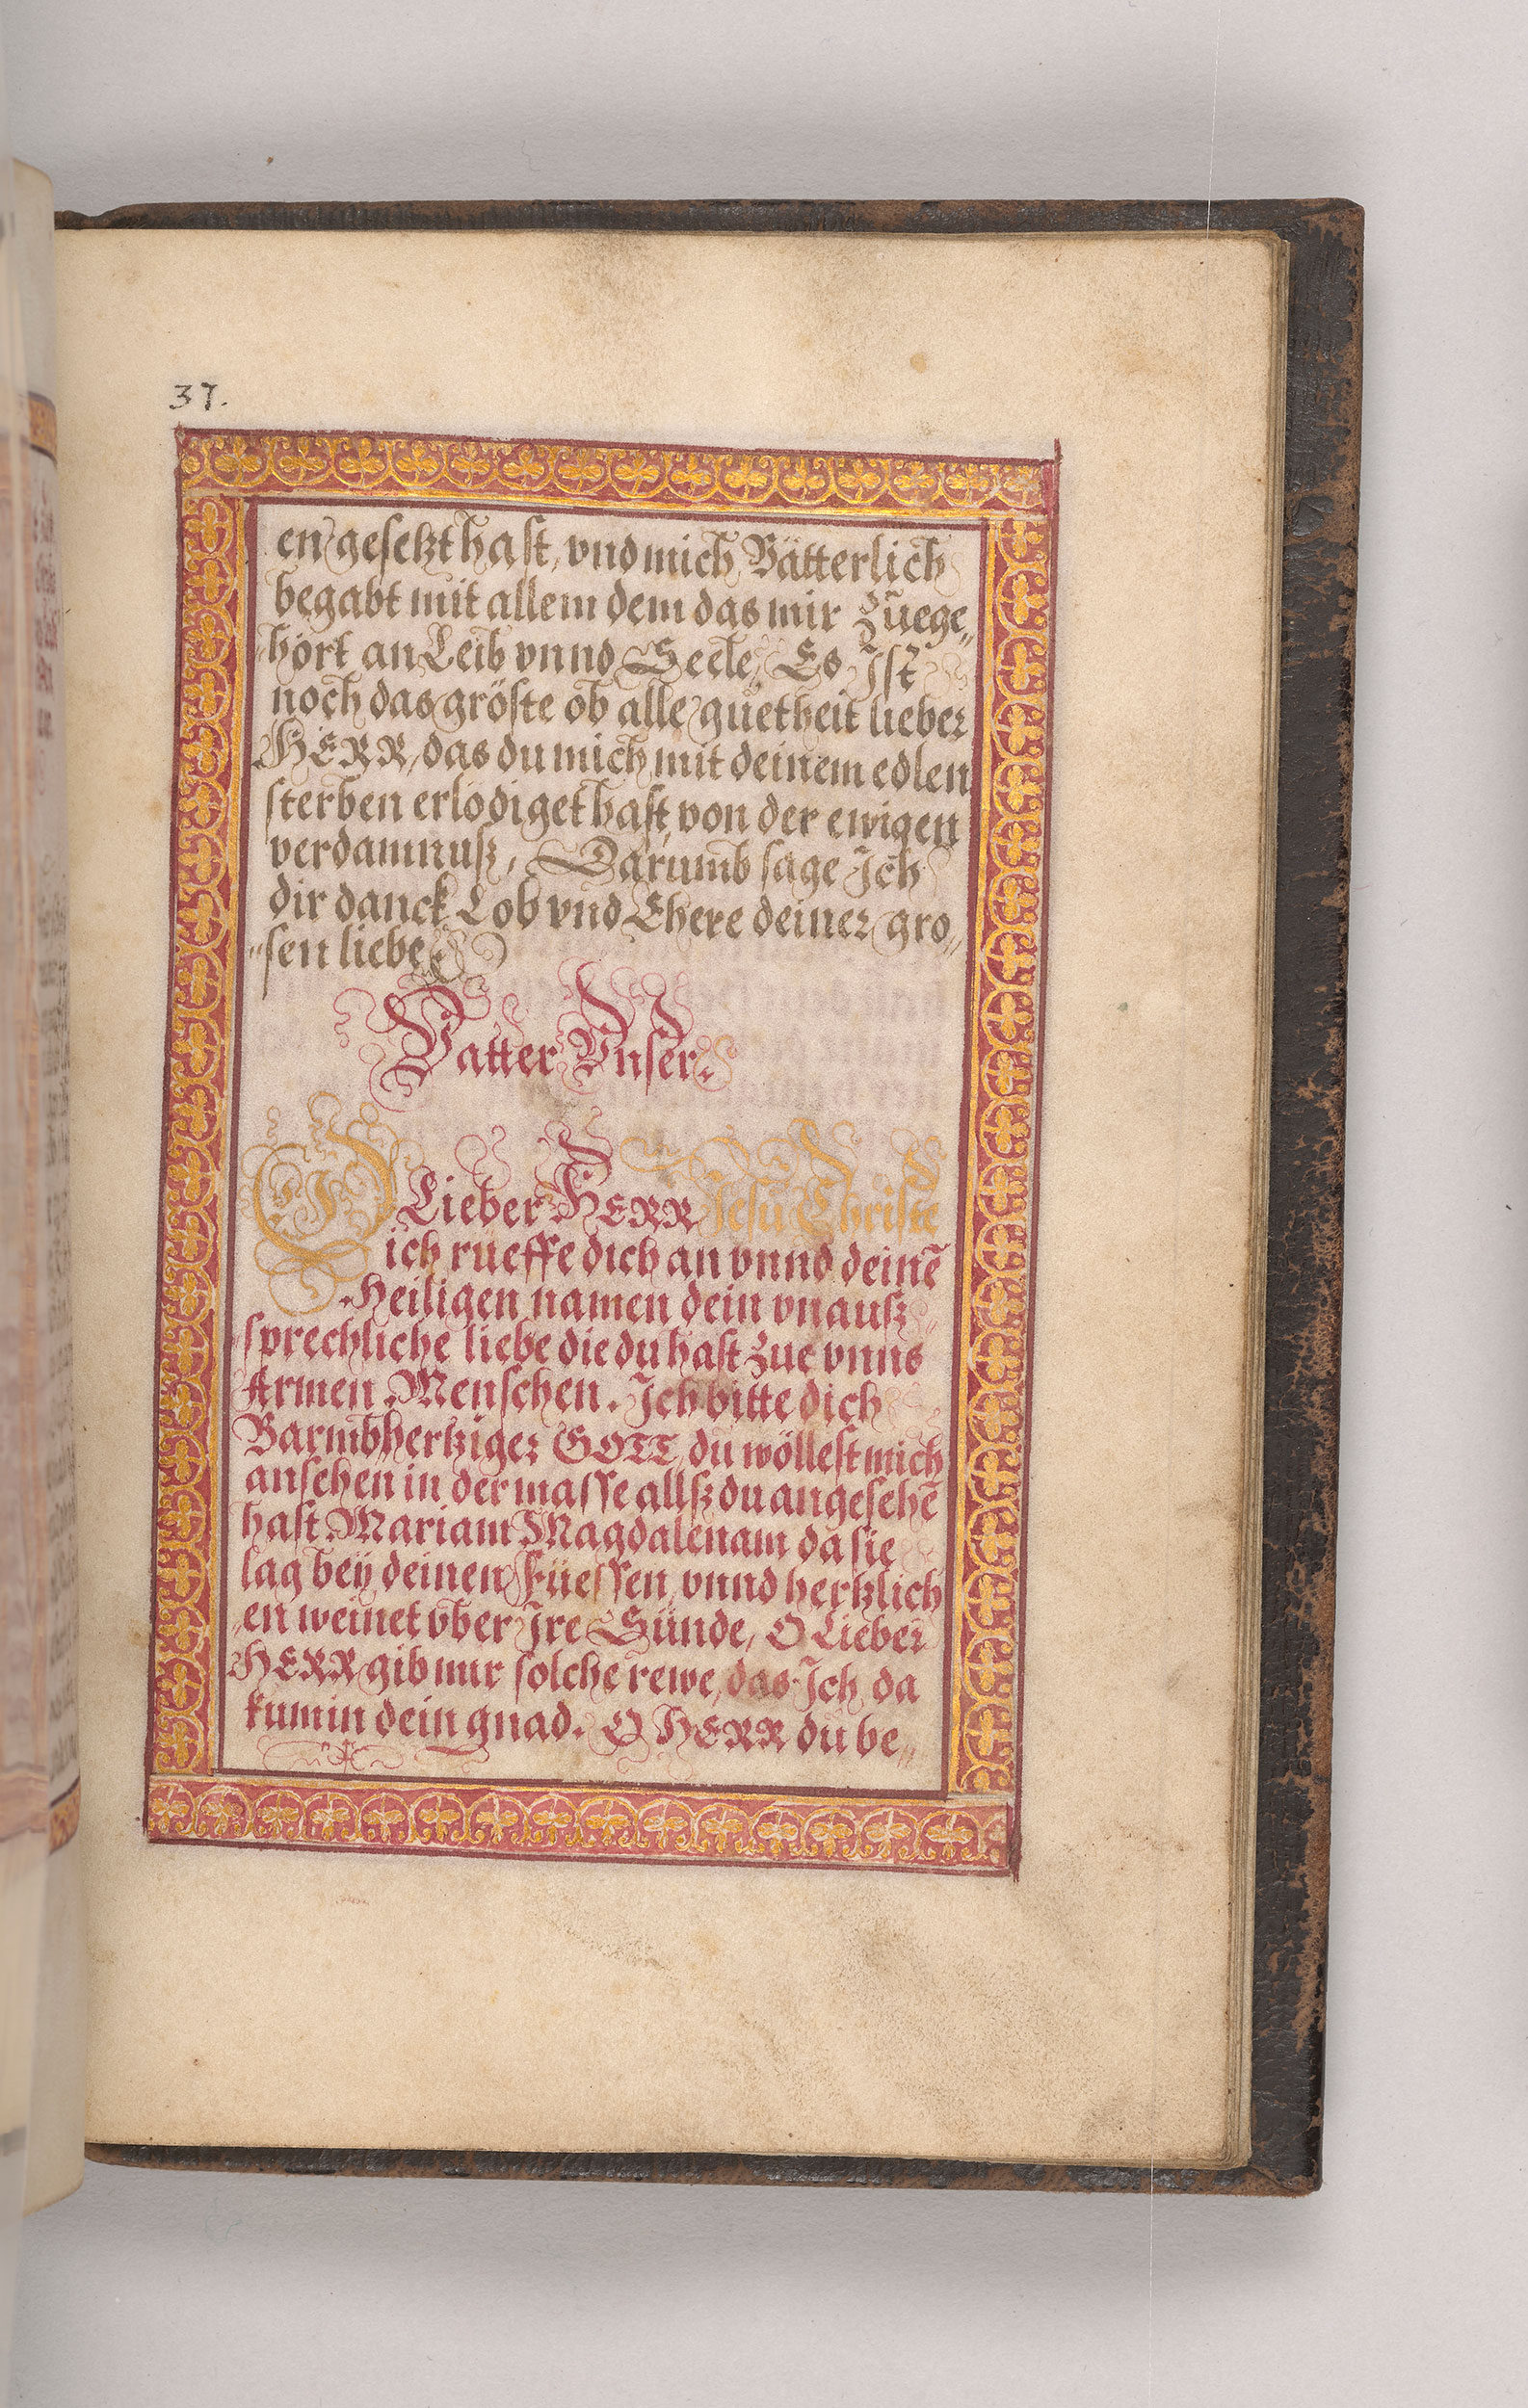 37.
en gesetzt hast, vnd mich Vätterlich
begabt mit allem dem das mir Zuege„
hört an Leib vnnd Seele, Es Ist
noch das gröste ob alle guetheit lieber
HERR, das du mich mit deinem edlen
sterben erlödiget hast, von der ewigen
verdamnusz, Darumb sage Ich
dir danck Lob vnd Ehere deiner gro„
„sen liebe
Vatter Vnser.
O Lieber HERR Jesu Christe
ich rueffe dich an vnnd deinē
Heiligen namen dein vnausz„
„sprechliche liebe die du hast Zue vnns
Armen Menschen. Ich bitte dich
Barmbhertziger GOTT, du wöllest mich
ansehen in der masse allsz du angesehē
hast Mariam Magdalenam da sie
lag beÿ deinen Füessen, vnnd hertzlich
„en weinet vber Ire Sünde, O Lieber
HERR gib mir solche rewe, das Ich da
kum in dein gnad. O HERR du be„